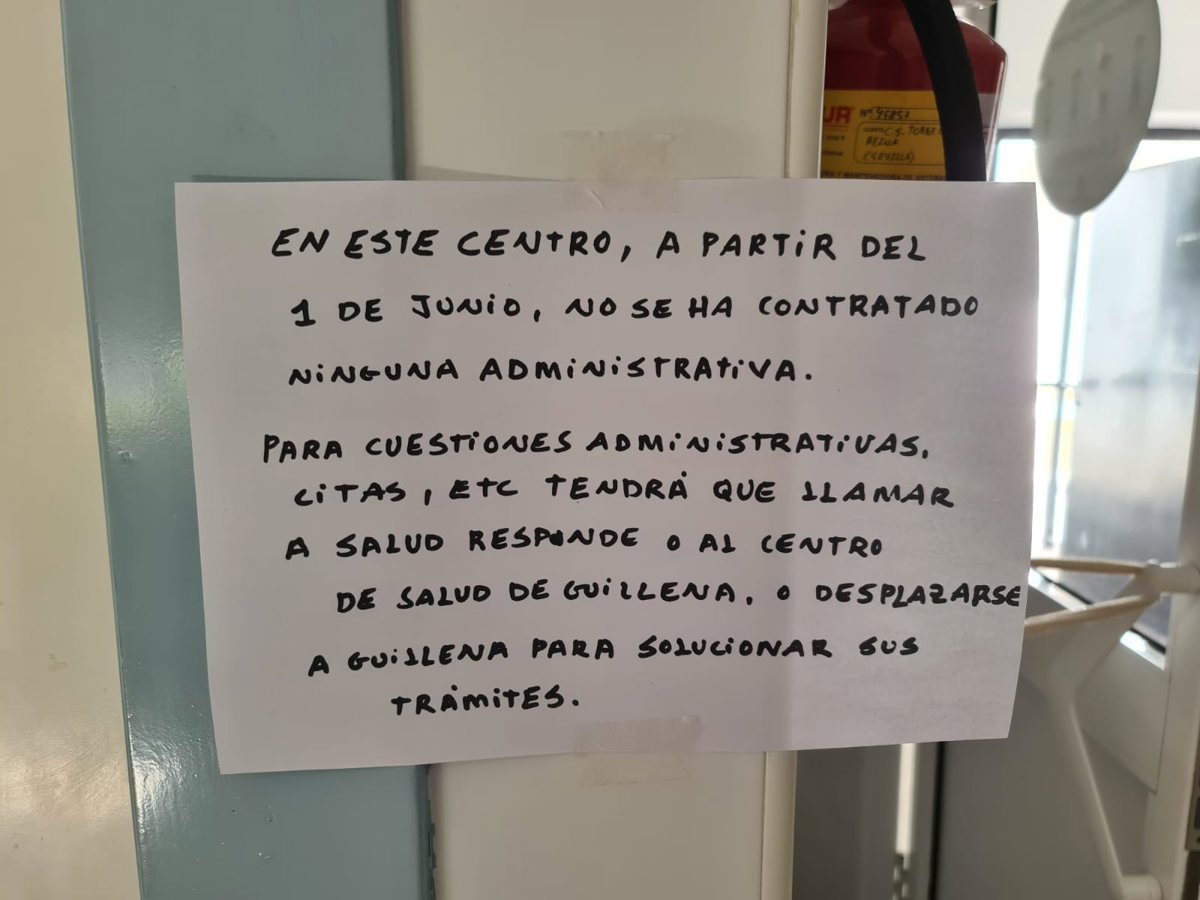 UR Nº 45857
C.S. TORRE
REINA
(SEVILLA)
EN ESTE CENTRO, A PARTIR DEL
1 DE JUNIO, NO SE HA CONTRATADO
NINGUNA ADMINISTRATIVA.
PARA CUESTIONES ADMINISTRATIVAS,
CITAS, ETC TENDRÁ QUE LLAMAR
A SALUD RESPONDE O AL CENTRO
DE SALUD DE GUILLENA, O DESPLAZARSE
A GUILLENA PARA SOLUCIONAR SUS
TRÁMITES.